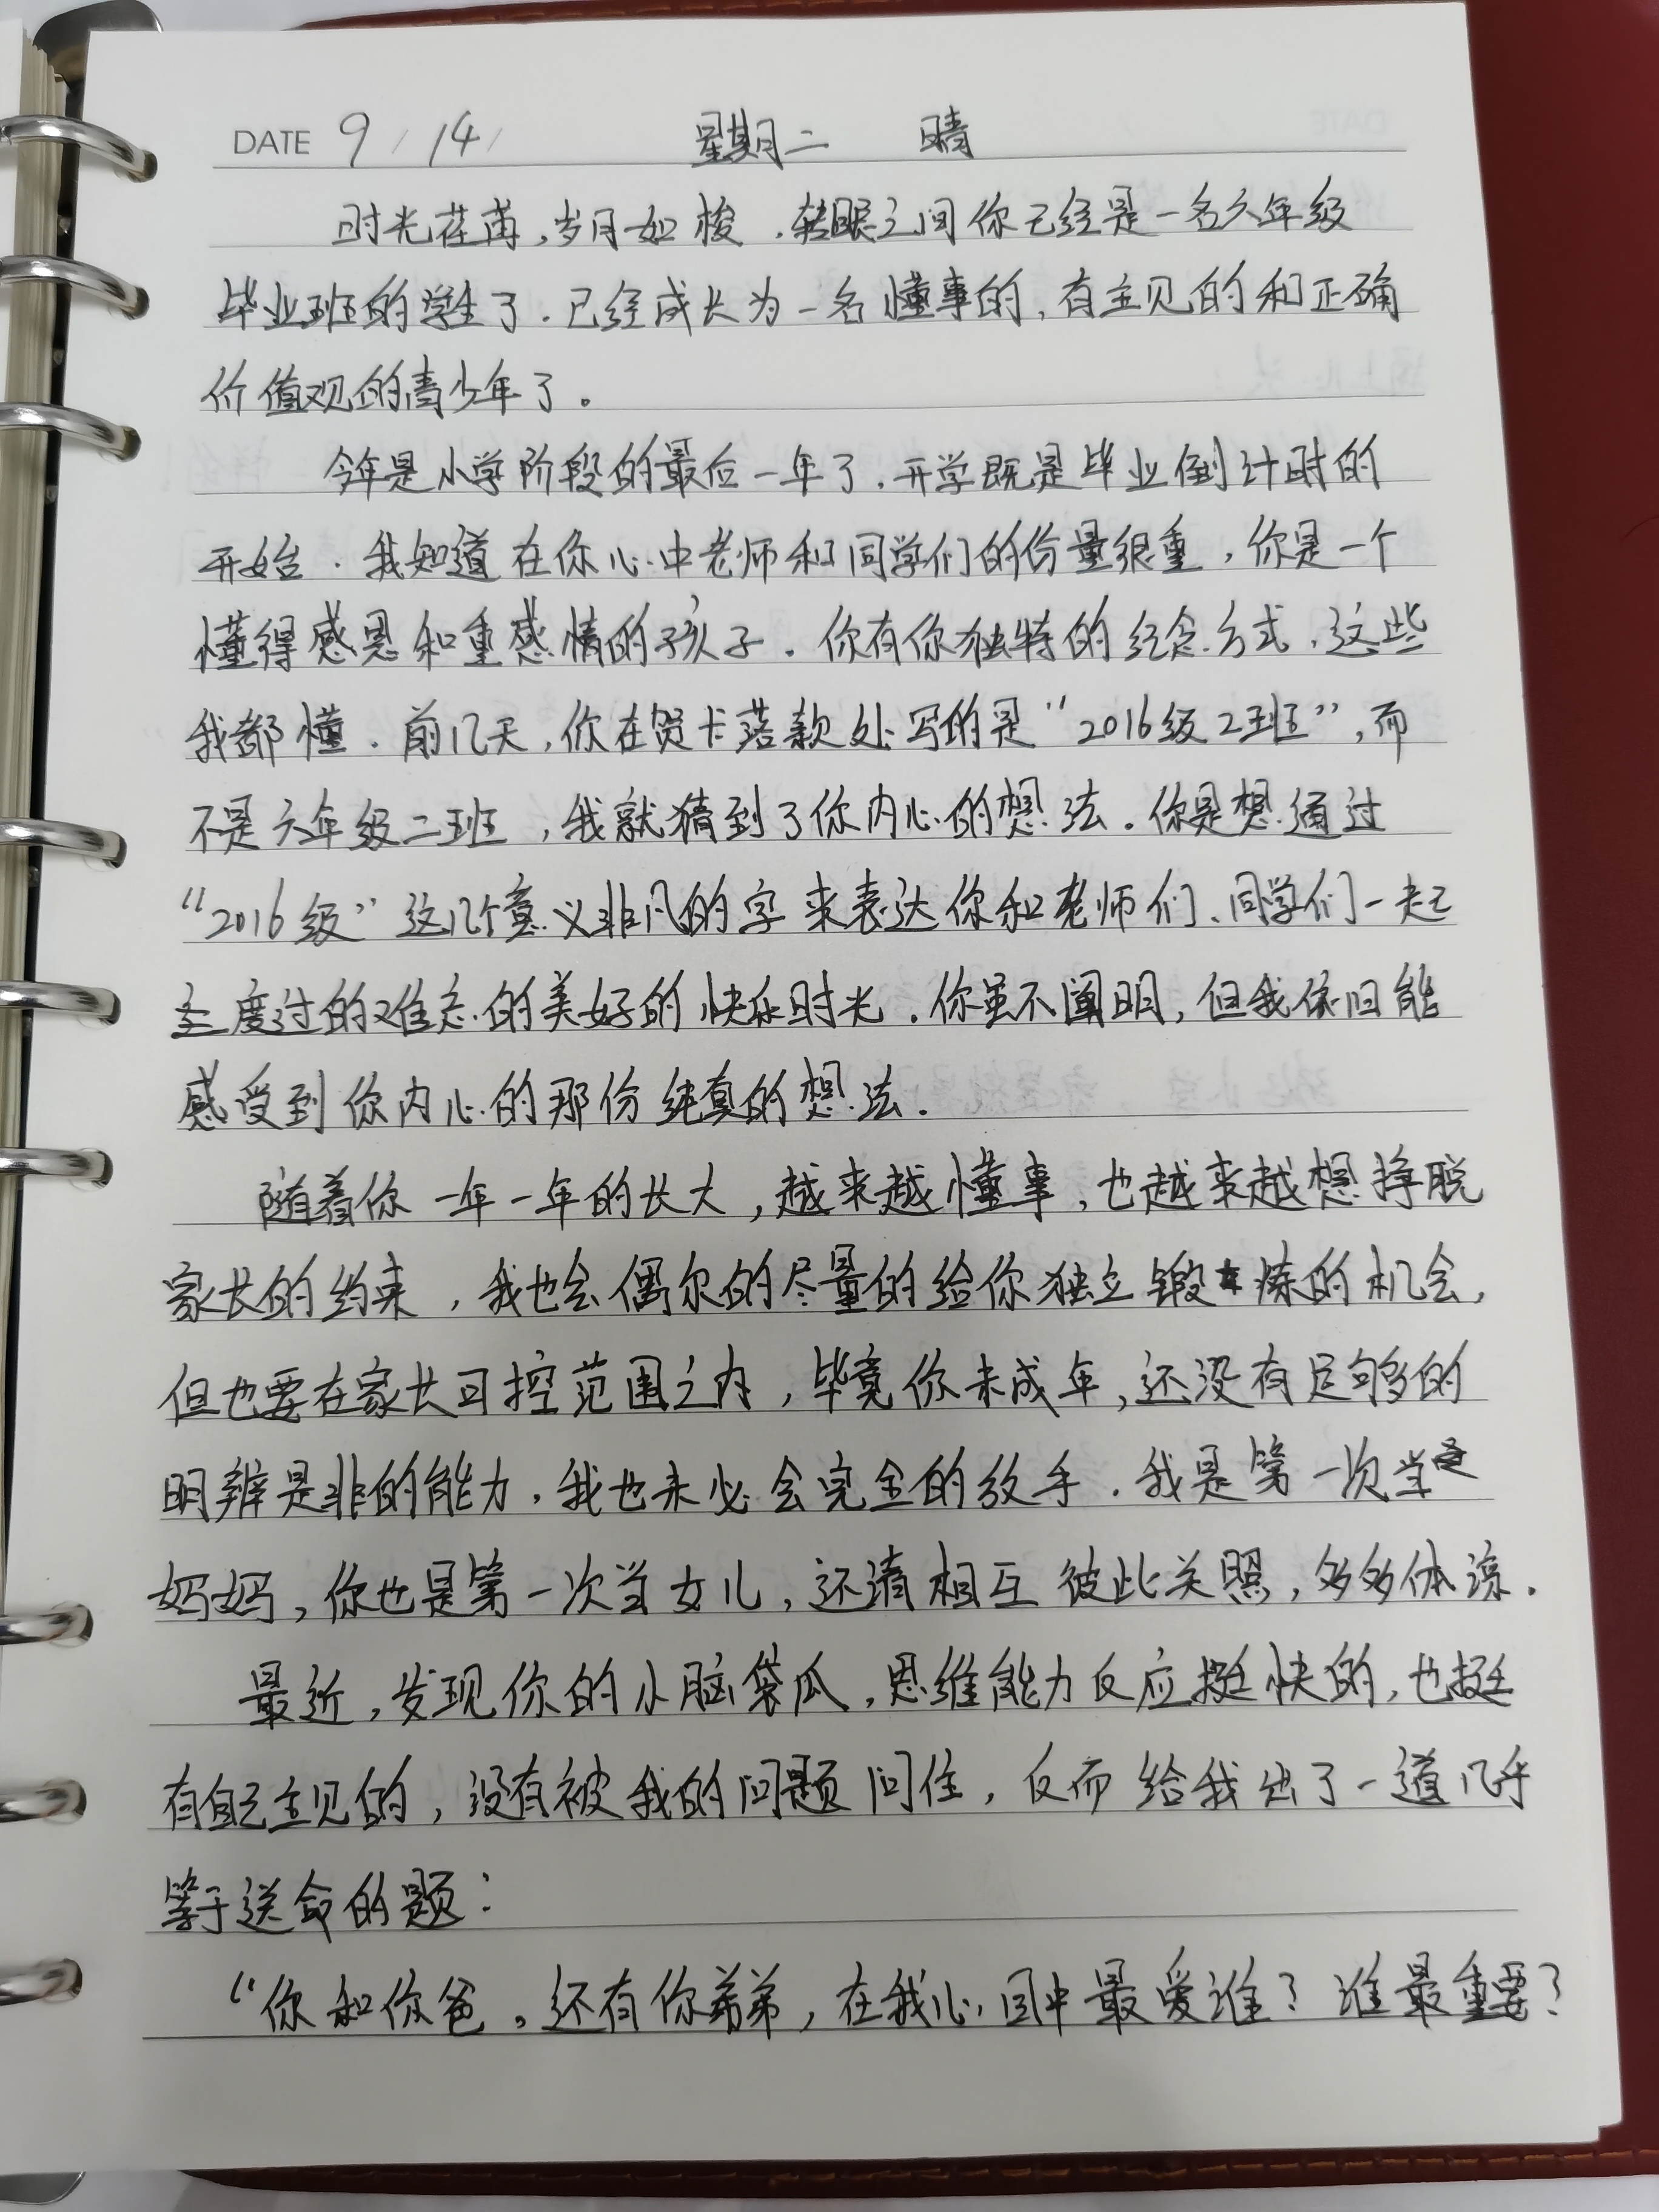 DATE 9 / 14 / 星期二 晴
时光荏苒,岁月如梭.转眼之间你已经是一名六年级
毕业班的学生了.已经成长为一名懂事的,有主见的和正确
价值观的青少年了。
今年是小学阶段的最后一年了.开学既是毕业倒计时的
开始.我知道在你心中老师和同学们的份量很重,你是一个
懂得感恩和重感情的孩子.你有你独特的纪念方式,这些
我都懂.前几天,你在贺卡落款处写的是“2016级2班”,而
不是六年级二班,我就猜到了你内心的想法.你是想通过
“2016级”这几个意义非凡的字来表达你和老师们、同学们一起
度过的难忘的美好的快乐时光.你虽不阐明,但我依旧能
感受到你内心的那份纯真的想法.
随着你一年一年的长大,越来越懂事,也越来越想挣脱
家长的约束,我也会偶尔的尽量的给你独立锻炼的机会,
但也要在家长可控范围之内,毕竟你未成年,还没有足够的
明辨是非的能力,我也未必会完全的放手.我是第一次当
妈妈,你也是第一次当女儿,还请相互彼此关照,多多体谅.
最近,发现你的小脑袋瓜,思维能力反应挺快的,也挺
有自己主见的,没有被我的问题问住,反而给我出了一道几乎
等于送命的题:
“你和你爸,还有你弟弟,在我心目中最爱谁?谁最重要?